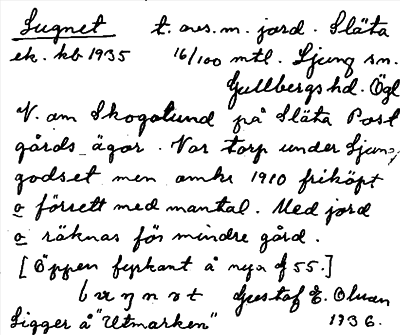 Lugnet t. ars. m. jord. Släta
ek. kb 1935 16/100 mtl. Ljung sn.
Gullbergs hd. Ögl
V. om Skogslund på Släta Post
gårds ägor. Var torp under Ljung,
godset men omkr 1910 friköpt
o försett med mantal. Med jord
o räknas för mindre gård.
[Öppen fyrkant å nya f 55.]
Gustaf E. Olsson
Ligger å "Utmarken" 1936.